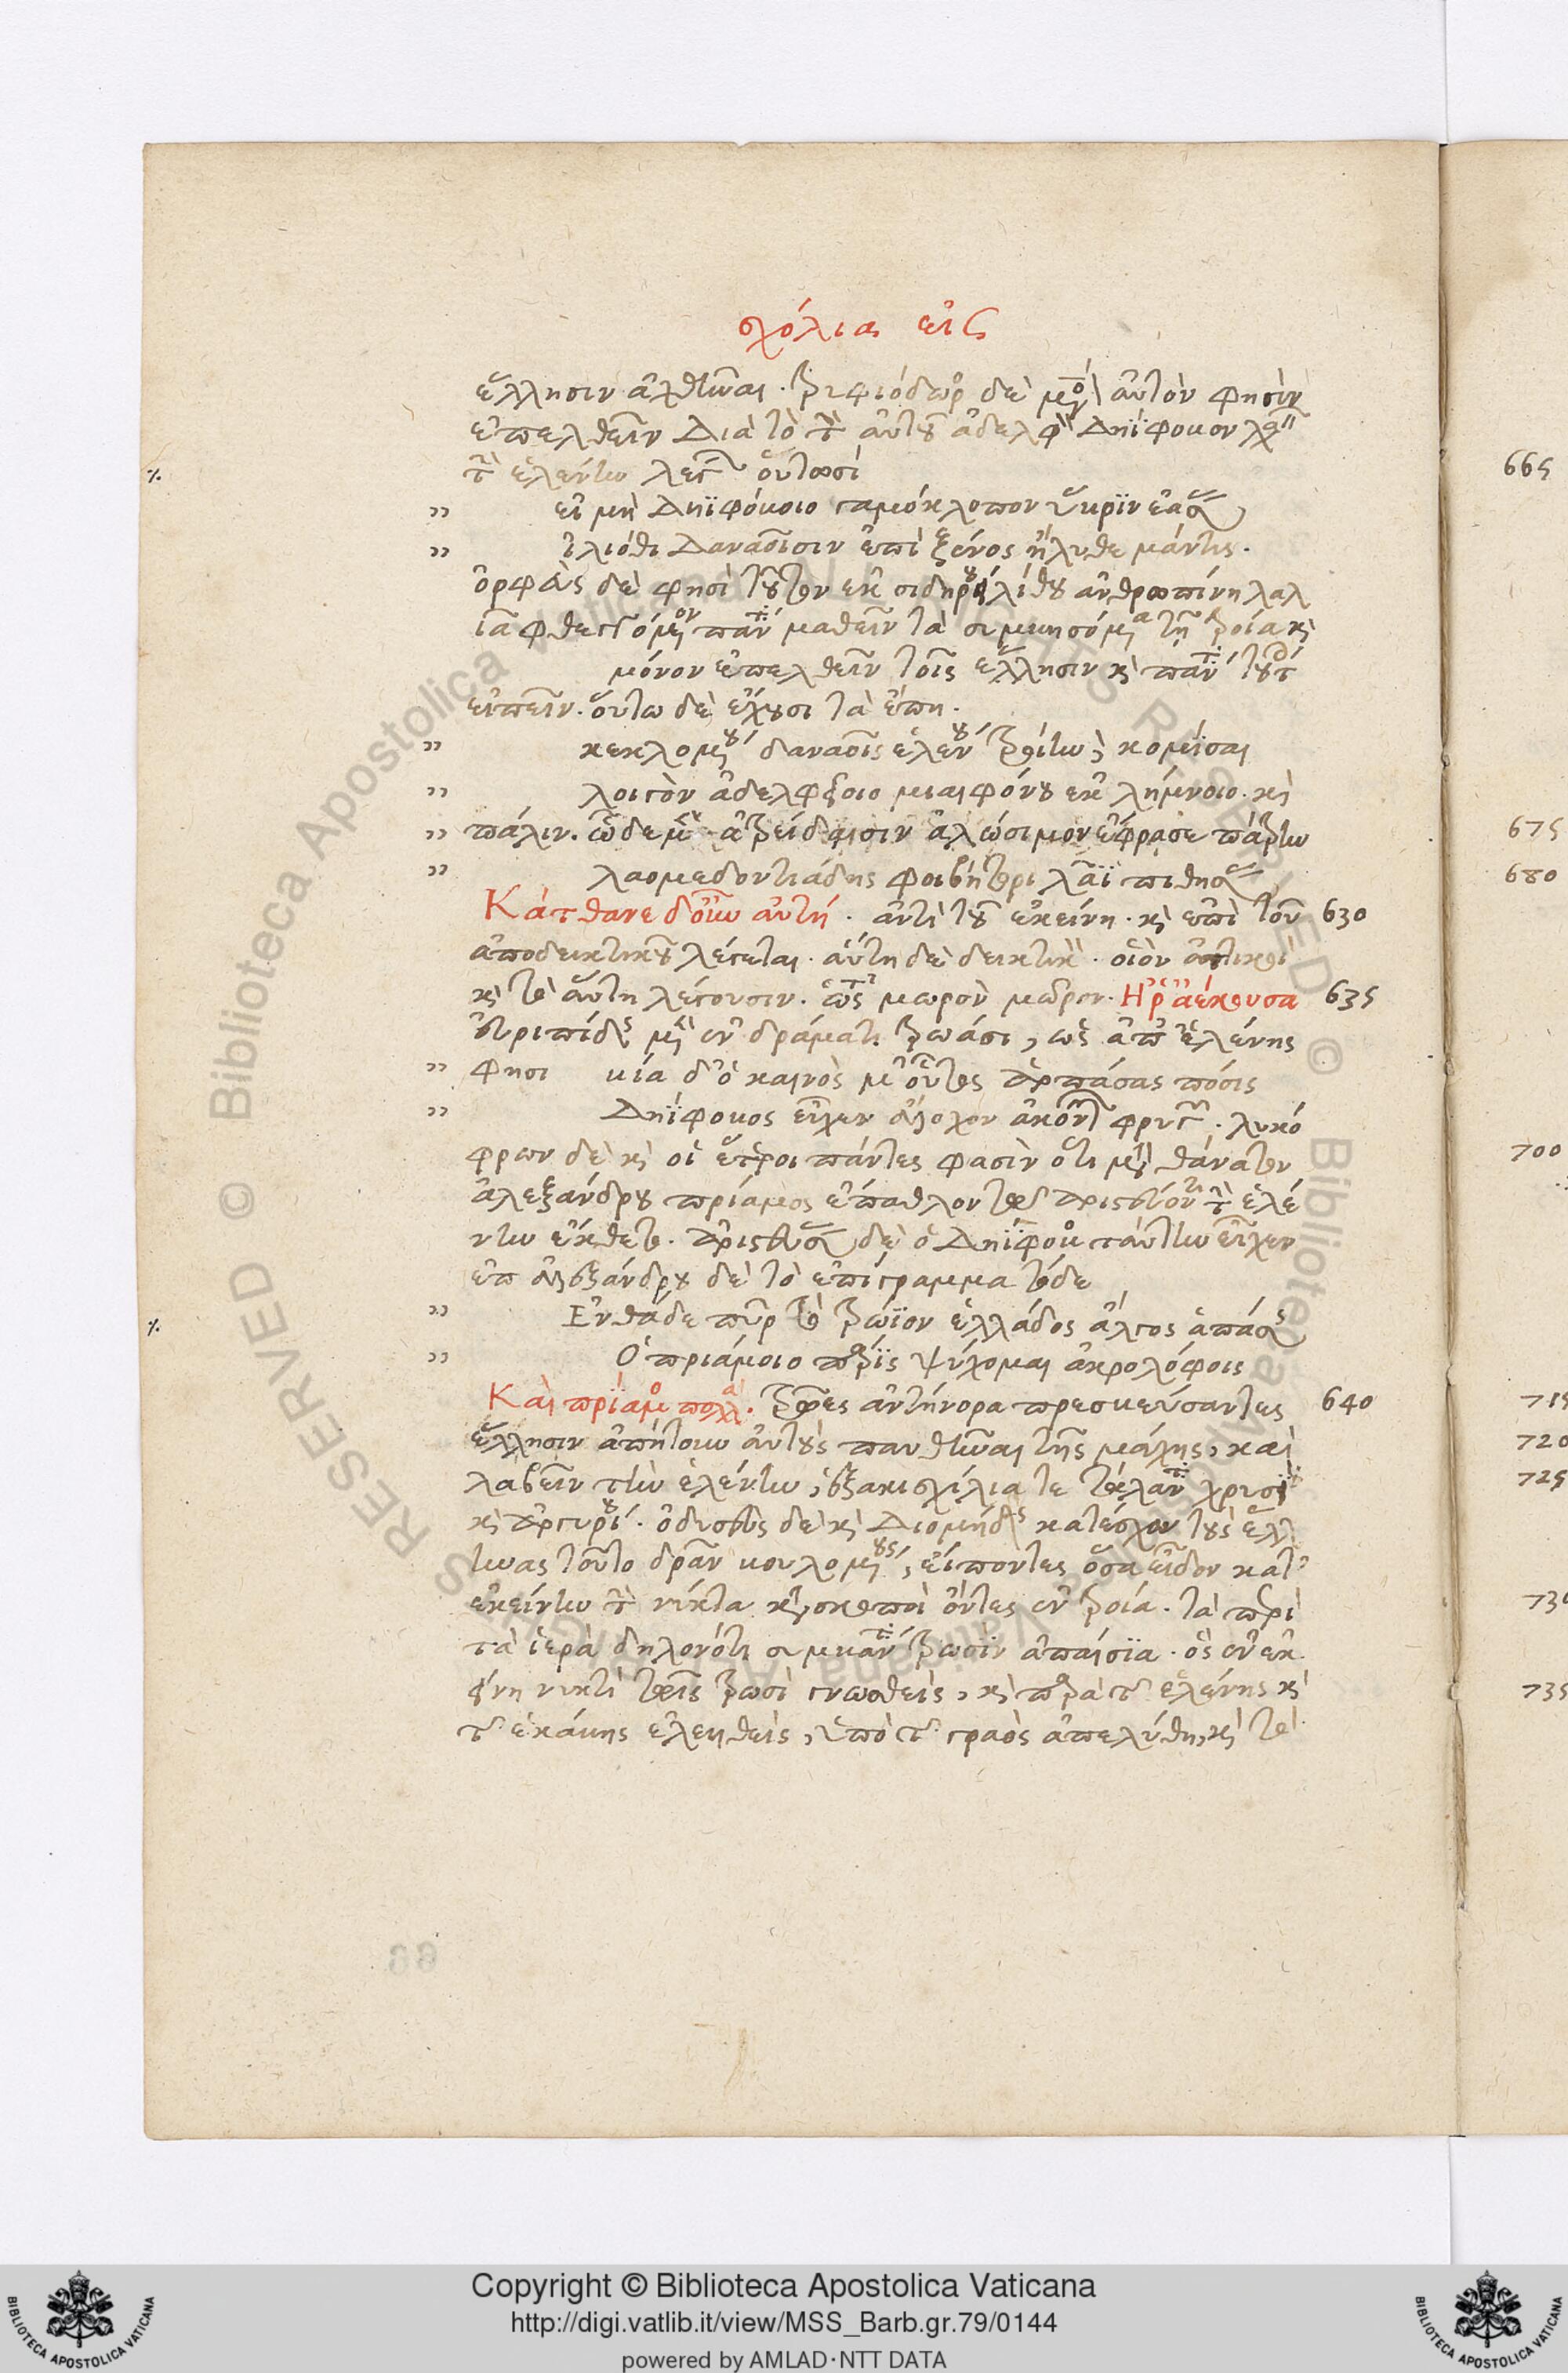 σχόλια εἰς
ἕλλησιν ἀχθῆναι. τριφιόδωρ δὲ μόν αὐτὸν φησὶν
ἐπελθεῖν διὰ τὸ τὸν αὐτοῦ ἀδελφὸν δηΐφοβον
τὴν ἑλένην λέγ οὑτωσί
εἰ μὴ δηΐφόβοιο γαμόκλοπον ὕβριν ἐάσας
ἰλιόθι δαναοῖσιν ἐπὶ ξένος ἤλυθε μάντις.
ὀρφεὺς δὲ φησὶ τοῦτον ἐκ σιδηρ λίθου ἀνθρωπίνη λαλ
ιᾶ φθεγγόμενον πάντα μαθεῖν τὰ συμβησόμενα τῇ τροία καὶ
μόνον ἐπελθεῖν τοῖς ἕλλησιν καὶ πάντα
εἰπεῖν. οὕτω δὲ ἔχουσι τὰ ἔπη.
κεκλομένου δαναοῖς ἑλένου τροίην, κομεῖσαι
λοιγὸν ἀδελφεοῖο μιαιφόνου ἐκ λήμνοιο. καὶ
πάλιν. ὧδε μὲν ἀτρείδαισιν ἁλώσιμον ἔφρασε πάτρην
λαομεδοντιάδης φοιβήτορι λᾶϊ πιθήσας
Κάτθανε δοίην αὐτή. ἀντὶ τοῦ ἐκείνη. καὶ ἐπὶ τοῦ 630
ἀποδεικτικοῦ λέγεται. αὕτη δὲ δεικτικὴ. οἱὸν ἀττικοὶ
καὶ τὸ αὕτη λέγουσιν. ὥς μωρὸν μῶρον. Ἡ ῥ' ἀέκουσα 635
εὐριπίδης μὲν ἐν δράματι τρωάσι, ὡς ἀπὸ ἑλένης
φησι βία δ' ὁ καινὸς μ' οὗτος ἁρπάσας πόσις
Δηΐφοβος εἶχεν ἄλοχον ἀκόντων φρυγῶν. λυκό
φρων δὲ καὶ οἱ ἕτεροι πάντες φασὶν ὅτι μετὰ θάνατον
ἀλεξάνδρου πρίαμος ἔπαθλον τοῦ ἀριστεύοντι τὴν ἑλέ
νην ἔκθετο. ἀριστεύσας δὲ ὁ δηΐφοβος ταύτην εἶχεν
ἐπ ἀλεξάνδρου δὲ τὸ ἐπίγραμμα τόδε
Ἐνθάδε πῦρ τὸ τρώϊον ἑλλάδος ἄλγος ἁπάσης
Ὁ πριάμοιο πάρις ψύχομαι ἀκρολόφοις
Καὶ πρίαμος πολλὰ. τρῶες ἀντήνορα πρεσβεύσαντες 640
ἕλλησιν ἀπῄτουν αὐτοὺς παυθῆναι τῆς μάχης, καὶ
λαβεῖν τὴν ἑλένην, ἑξακισχίλια τε τάλαντα χρυσίου
καὶ ἀργυρίου. ὀδυσσεὺς δὲ καὶ διομήδης κατέσχον τοὺς ἕλλ
ηνας τοῦτο δρᾶν βουλομένους, εἰπόντες ὅσα εἶδον κατ'
ἐκείνην τὴν νύκτα κατάσκοποι ὄντες ἐν τροία. τὰ περὶ
τὰ ἱερὰ δηλονότι συμβάντα τρωσὶν ἀπαίσια. ὃς ἐν ἐκ
είνη νυκτὶ τοῖς τρωσὶ γνωσθεὶς, καὶ παρὰ τῆς ἑλένης καὶ
τῆς ἑκάβης ἐλεηθεὶς, ὑπὸ τῆς γραὸς ἀπελύθη, καὶ τὸ
665
675
680
700
715
720
725
735
66
Copyright © Biblioteca Apostolica Vaticana
http://digi.vatlib.it/view/MSS_Barb.gr.79/0144
powered by AMLAD·NTT DATA
BIBLIOTECA APOSTOLICA VATICANA
BIBLIOTECA APOSTOLICA VATICANA